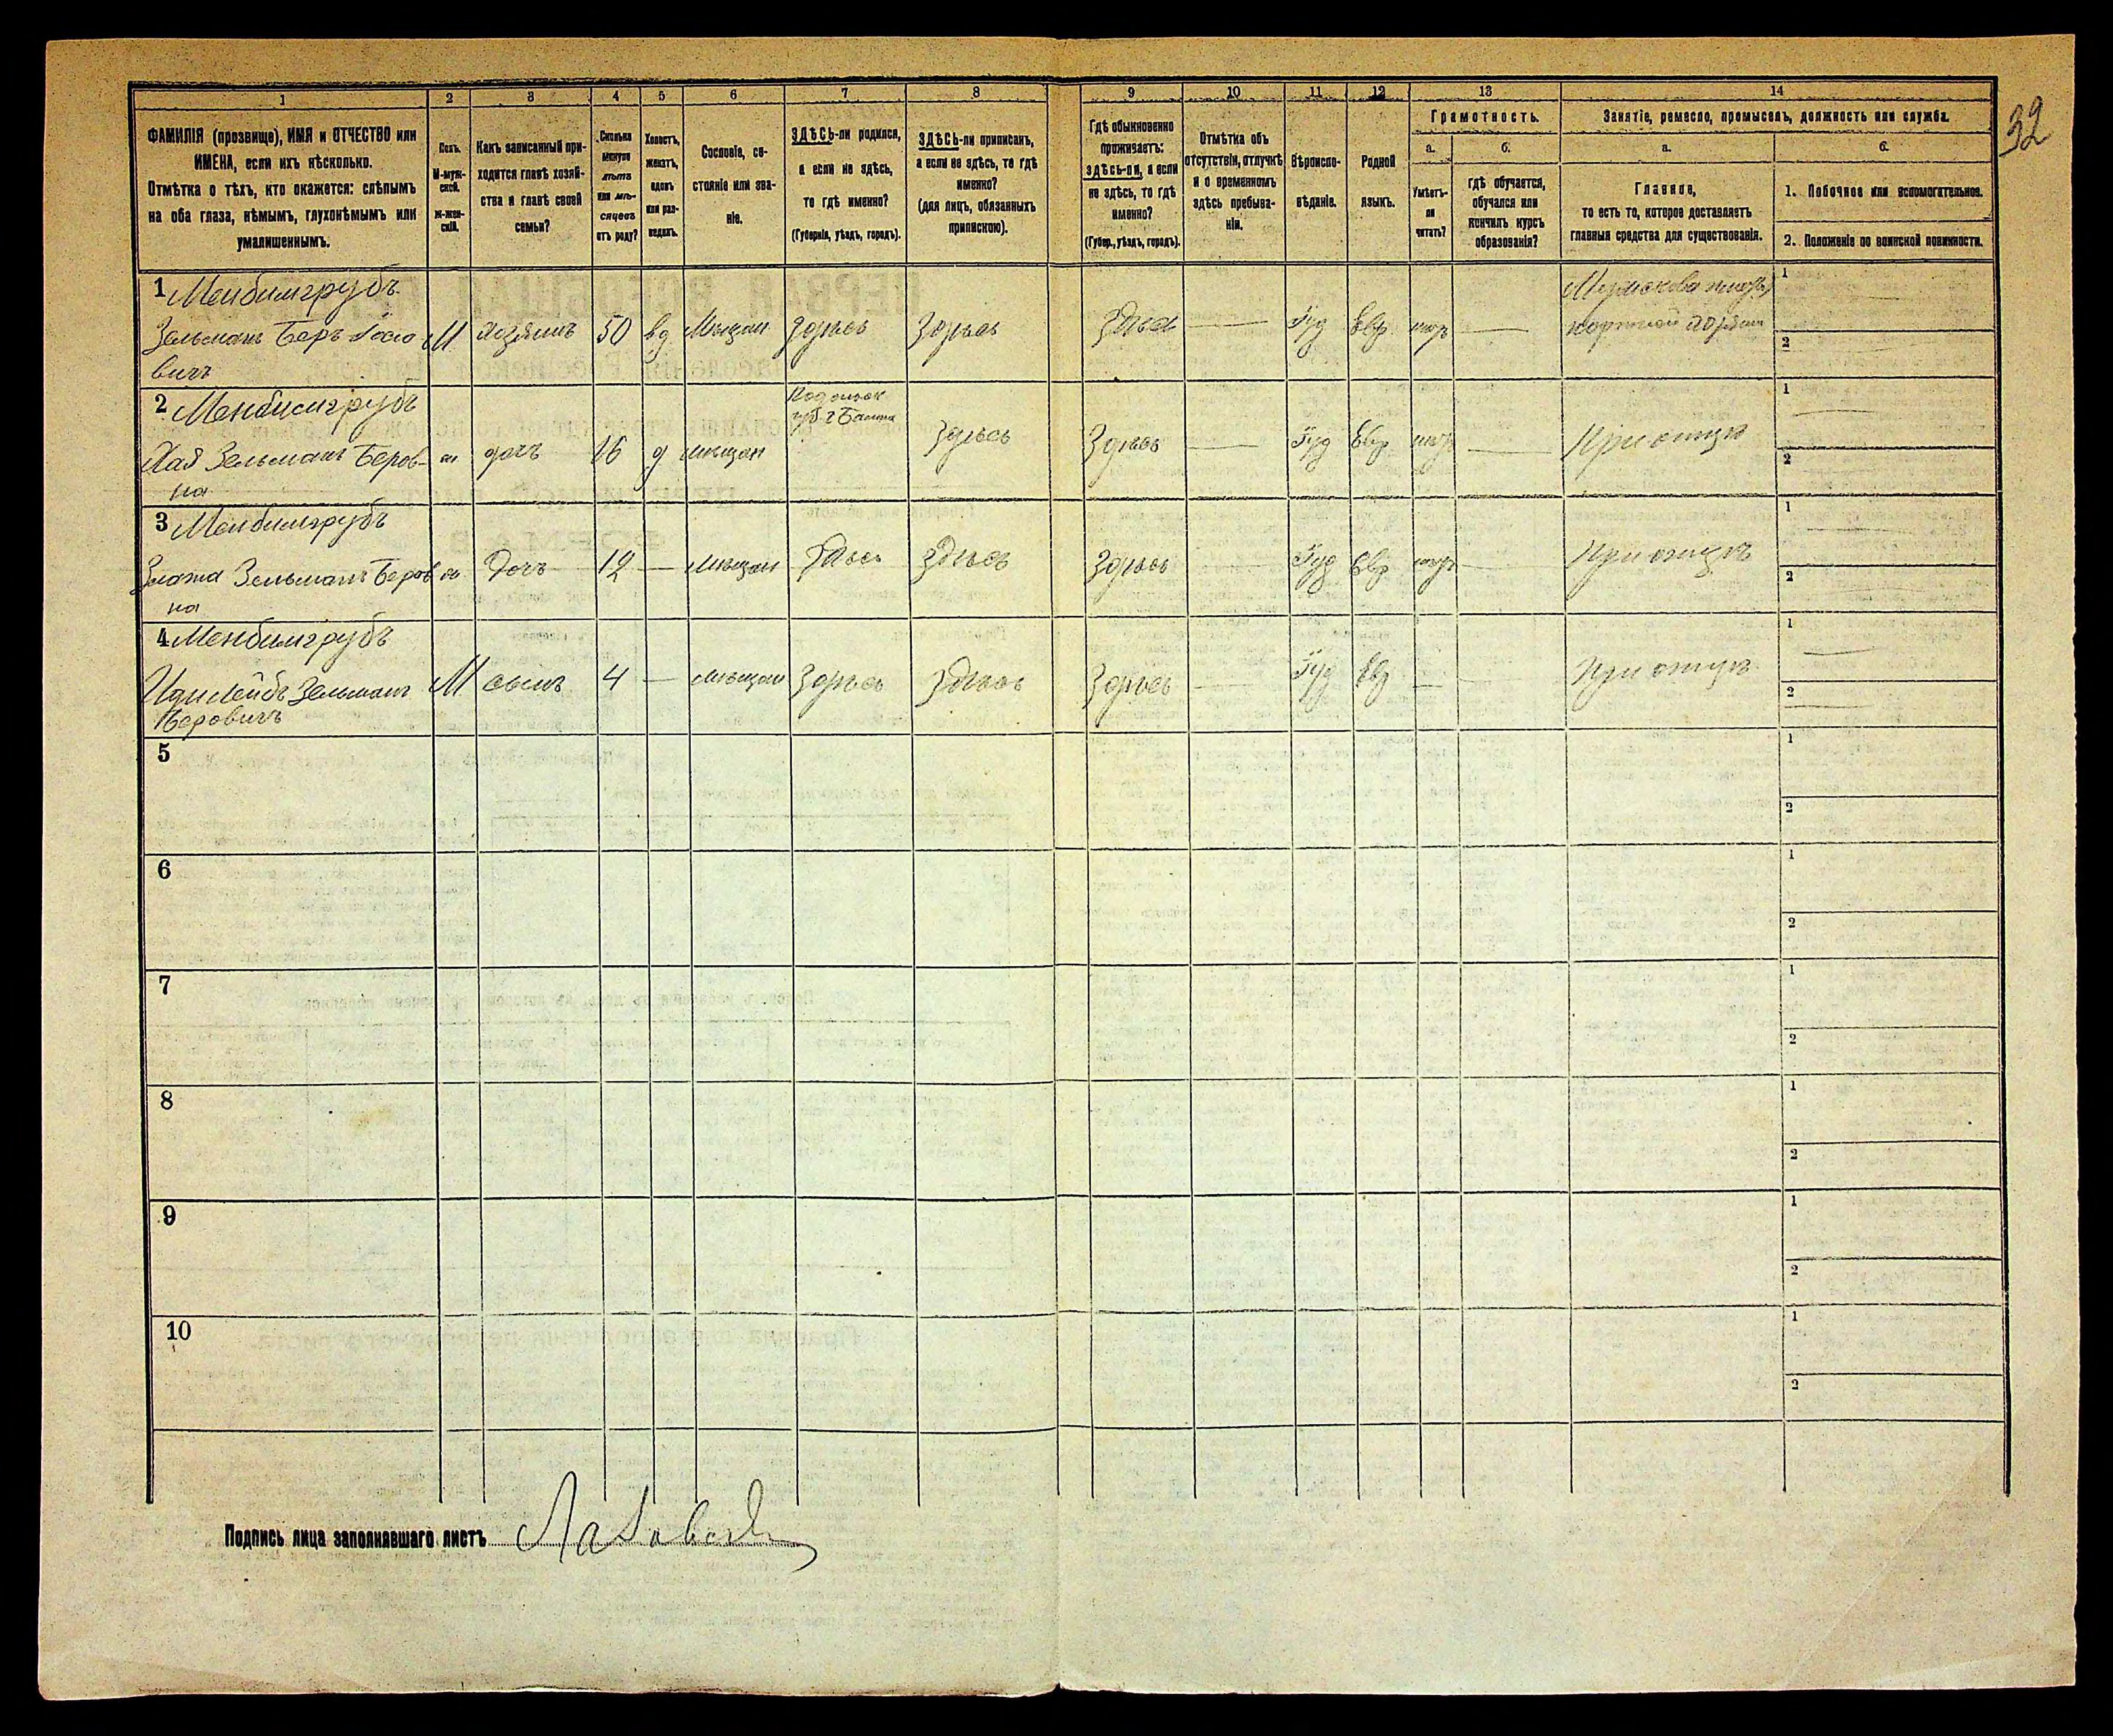 32
1 2 3 4 5 6 7 8 9 10 11 12 13 14
ФАМИЛІЯ (прозвище), ИМЯ и ОТЧЕСТВО или
ИМЕНА, если ихъ нѣсколько.
Отмѣтка о тѣхъ, кто окажется: слѣпымъ
на оба глаза, нѣмымъ, глухонѣмымъ или
умалишеннымъ.
Полъ.
М-муж-
ской.
ж-жен-
скій.
Какъ записанный при-
ходится главѣ хозяй-
ства и главѣ своей
семьи?
Сколько
минуло
лѣтъ
или мѣ-
сяцевъ
отъ роду?
Холостъ,
женатъ,
вдовъ
или раз-
веденъ.
Сословіе, со-
стояніе или зва-
ніе.
ЗДѢСЬ-ли родился,
а если не здѣсь,
то гдѣ именно?
(Губернія, уѣздъ, городъ).
ЗДѢСЬ-ли приписанъ,
а если не здѣсь, то гдѣ
именно?
(для лицъ, обязанныхъ
припискою).
Гдѣ обыкновенно
проживаетъ:
здѣсь-ли, а если
не здѣсь, то гдѣ
именно?
(Губер., уѣздъ, городъ).
Отмѣтка объ
отсутствіи, отлучкѣ
и о временномъ
здѣсь пребыва-
ніи.
Вѣроиспо-
вѣданіе.
Родной
языкъ.
Грамотность.
а. б.
Умѣетъ-
ли
читать?
гдѣ обучается,
обучался или
кончилъ курсъ
образованія?
Занятіе, ремесло, промыселъ, должность или служба.
а. б.
Главное,
то есть то, которое доставляетъ
главныя средства для существованія.
1. Побочное или вспомогательное.
2. Положеніе по воинской повинности.
1
Зельманъ Беръ
вичъ
М Хозяинъ 50 вд Мѣщан Здѣсь Здѣсь Здѣсь — Іуд Евр —
портной хозяин
1
2
2
Хая Зельманъ Беров-
на
дочъ 16 д мѣщан
Подольск
губ. г Балта
Здѣсь Здѣсь — Іуд Евр — При отцѣ
1
2
3
Злата Зельманъ Беров
на
Дочъ 12 — Мѣщан Здѣсь Здѣсь Здѣсь — Іуд Евр — При отцѣ
1
2
4
Лейбъ Зельманъ
Беровичъ
М сынъ 4 — мѣщан Здѣсь Здѣсь Здѣсь — Іуд Евр — — При отцѣ
1
2
5
1
2
6
1
2
7
1
2
8
1
2
9
1
2
10
1
2
Подпись лица заполнявшаго листъ